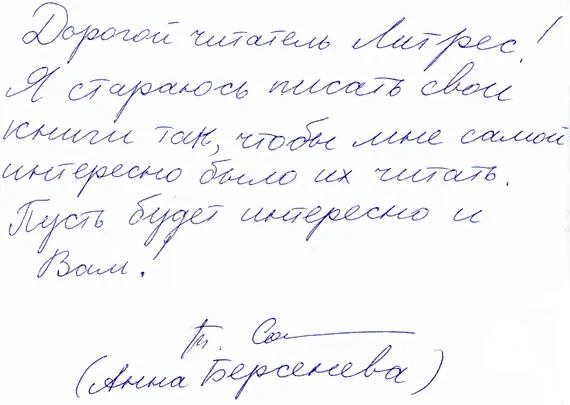 Дорогой читатель Литрес!
Я стараюсь писать свои
книги так, чтобы мне самой
интересно было их читать.
Пусть будет интересно и
Вам!
(Анна Берсенева)